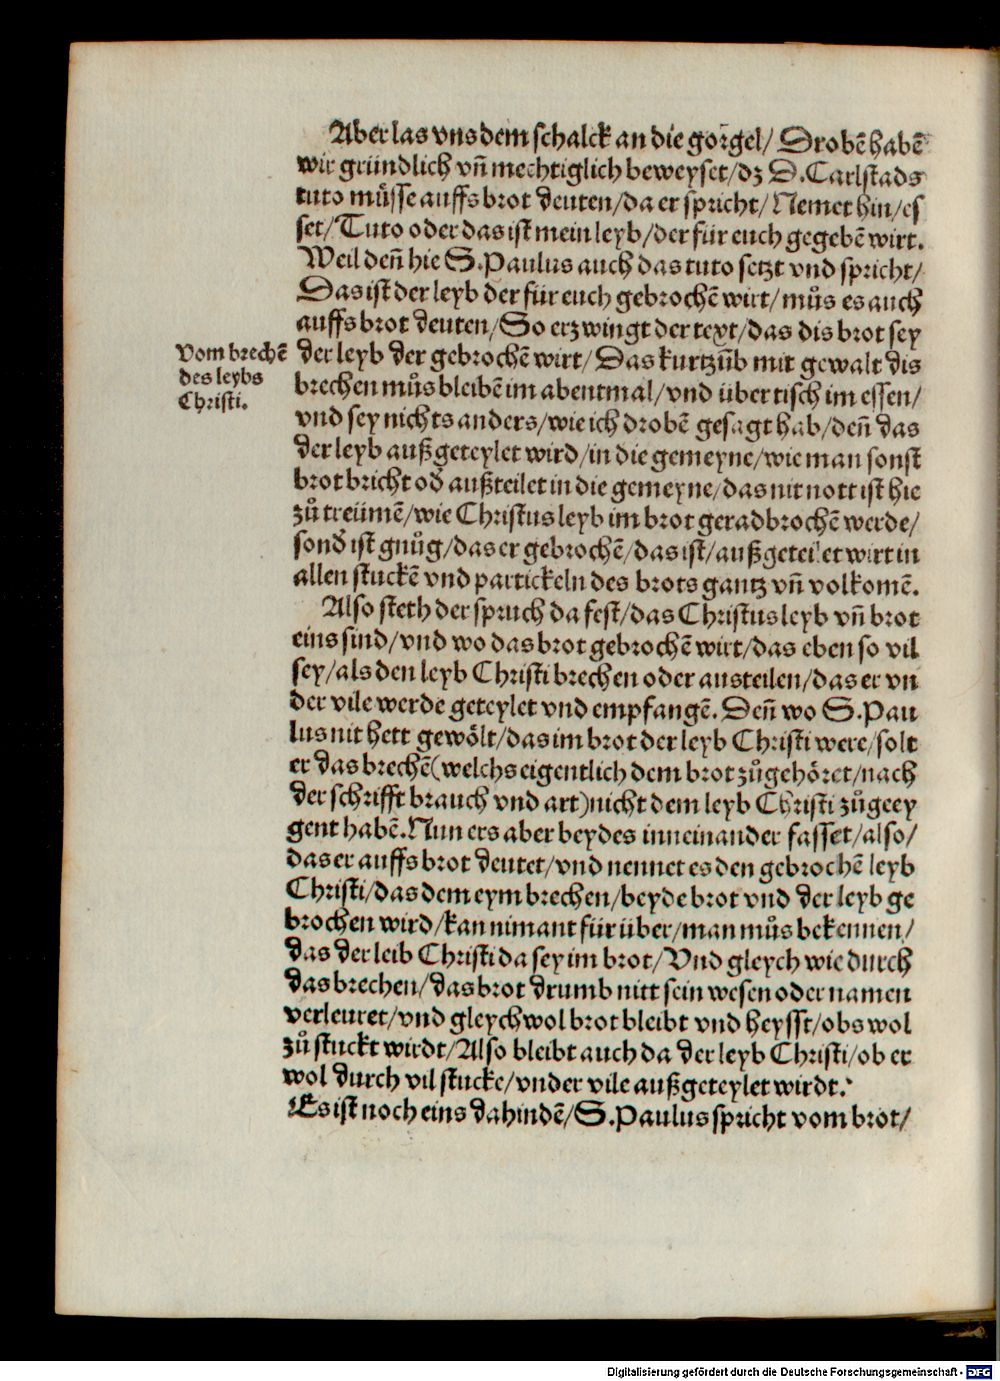 Aber las vns dem schalck an die gorgel/ Drobē habē
wir gründlich vñ mechtiglich beweyset/dz D.Carlstads
tuto müsse auffs brot deuten/da er spricht/Nemet hin/es
set/Tuto oder das ist mein leyb/der für euch gegebē wirt.
Weil deñ hie S.Paulus auch das tuto setzt vnd spricht/
Das ist der leyb der für euch gebrochē wirt/můs es auch
auffs brot deuten/So erzwingt der text/das dis brot sey
Vom brechē
des leybs
Christi.
der leyb der gebrochē wirt/Das kurtzūb mit gewalt dis
brechen můs bleibē im abentmal/vnd über tisch im essen/
vnd sey nichts anders/wie ich drobē gesagt hab/deñ das
der leyb außgeteylet wird/in die gemeyne/wie man sonst
brot bricht od̄ außteilet in die gemeyne/das nit nott ist hie
zů treümē/wie Christus leyb im brot geradbrochē werde/
sond̄ ist gnůg/das er gebrochē/das ist/außgeteilet wirt in
allen stuckē vnd partickeln des brots gantz vñ volkomē.
Also steth der spruch da fest/das Christus leyb vñ brot
eins sind/vnd wo das brot gebrochē wirt/das eben so vil
sey/als den leyb Christi brechen oder austeilen/das er vn
der vile werde geteylet vnd empfangē.Deñ wo S.Pau
lus nit hett gewölt/das im brot der leyb Christi were/solt
er das brechē(welchs eigentlich dem brot zůgehöret/nach
der schrifft brauch vnd art)nicht dem leyb Christi zůgeey
gent habē.Nun ers aber beydes inneinander fasset/also/
das er auffs brot deutet/vnd nennet es den gebrochē leyb
Christi/das dem eym brechen/beyde brot vnd der leyb ge
brochen wird/kan nimant für über/man můs bekennen/
das der leib Christi da sey im brot/Vnd gleych wie durch
das brechen/das brot drumb nitt sein wesen oder namen
verleuret/vnd gleychwol brot bleibt vnd heysst/obs wol
zů stuckt wirdt/Also bleibt auch da der leyb Christi/ob er
wol durch vil stucke/vnder vile außgeteylet wirdt.
Es ist noch eins dahindē/S.Paulus spricht vom brot/
Digitalisierung gefördert durch die Deutsche Forschungsgemeinschaft - DFG